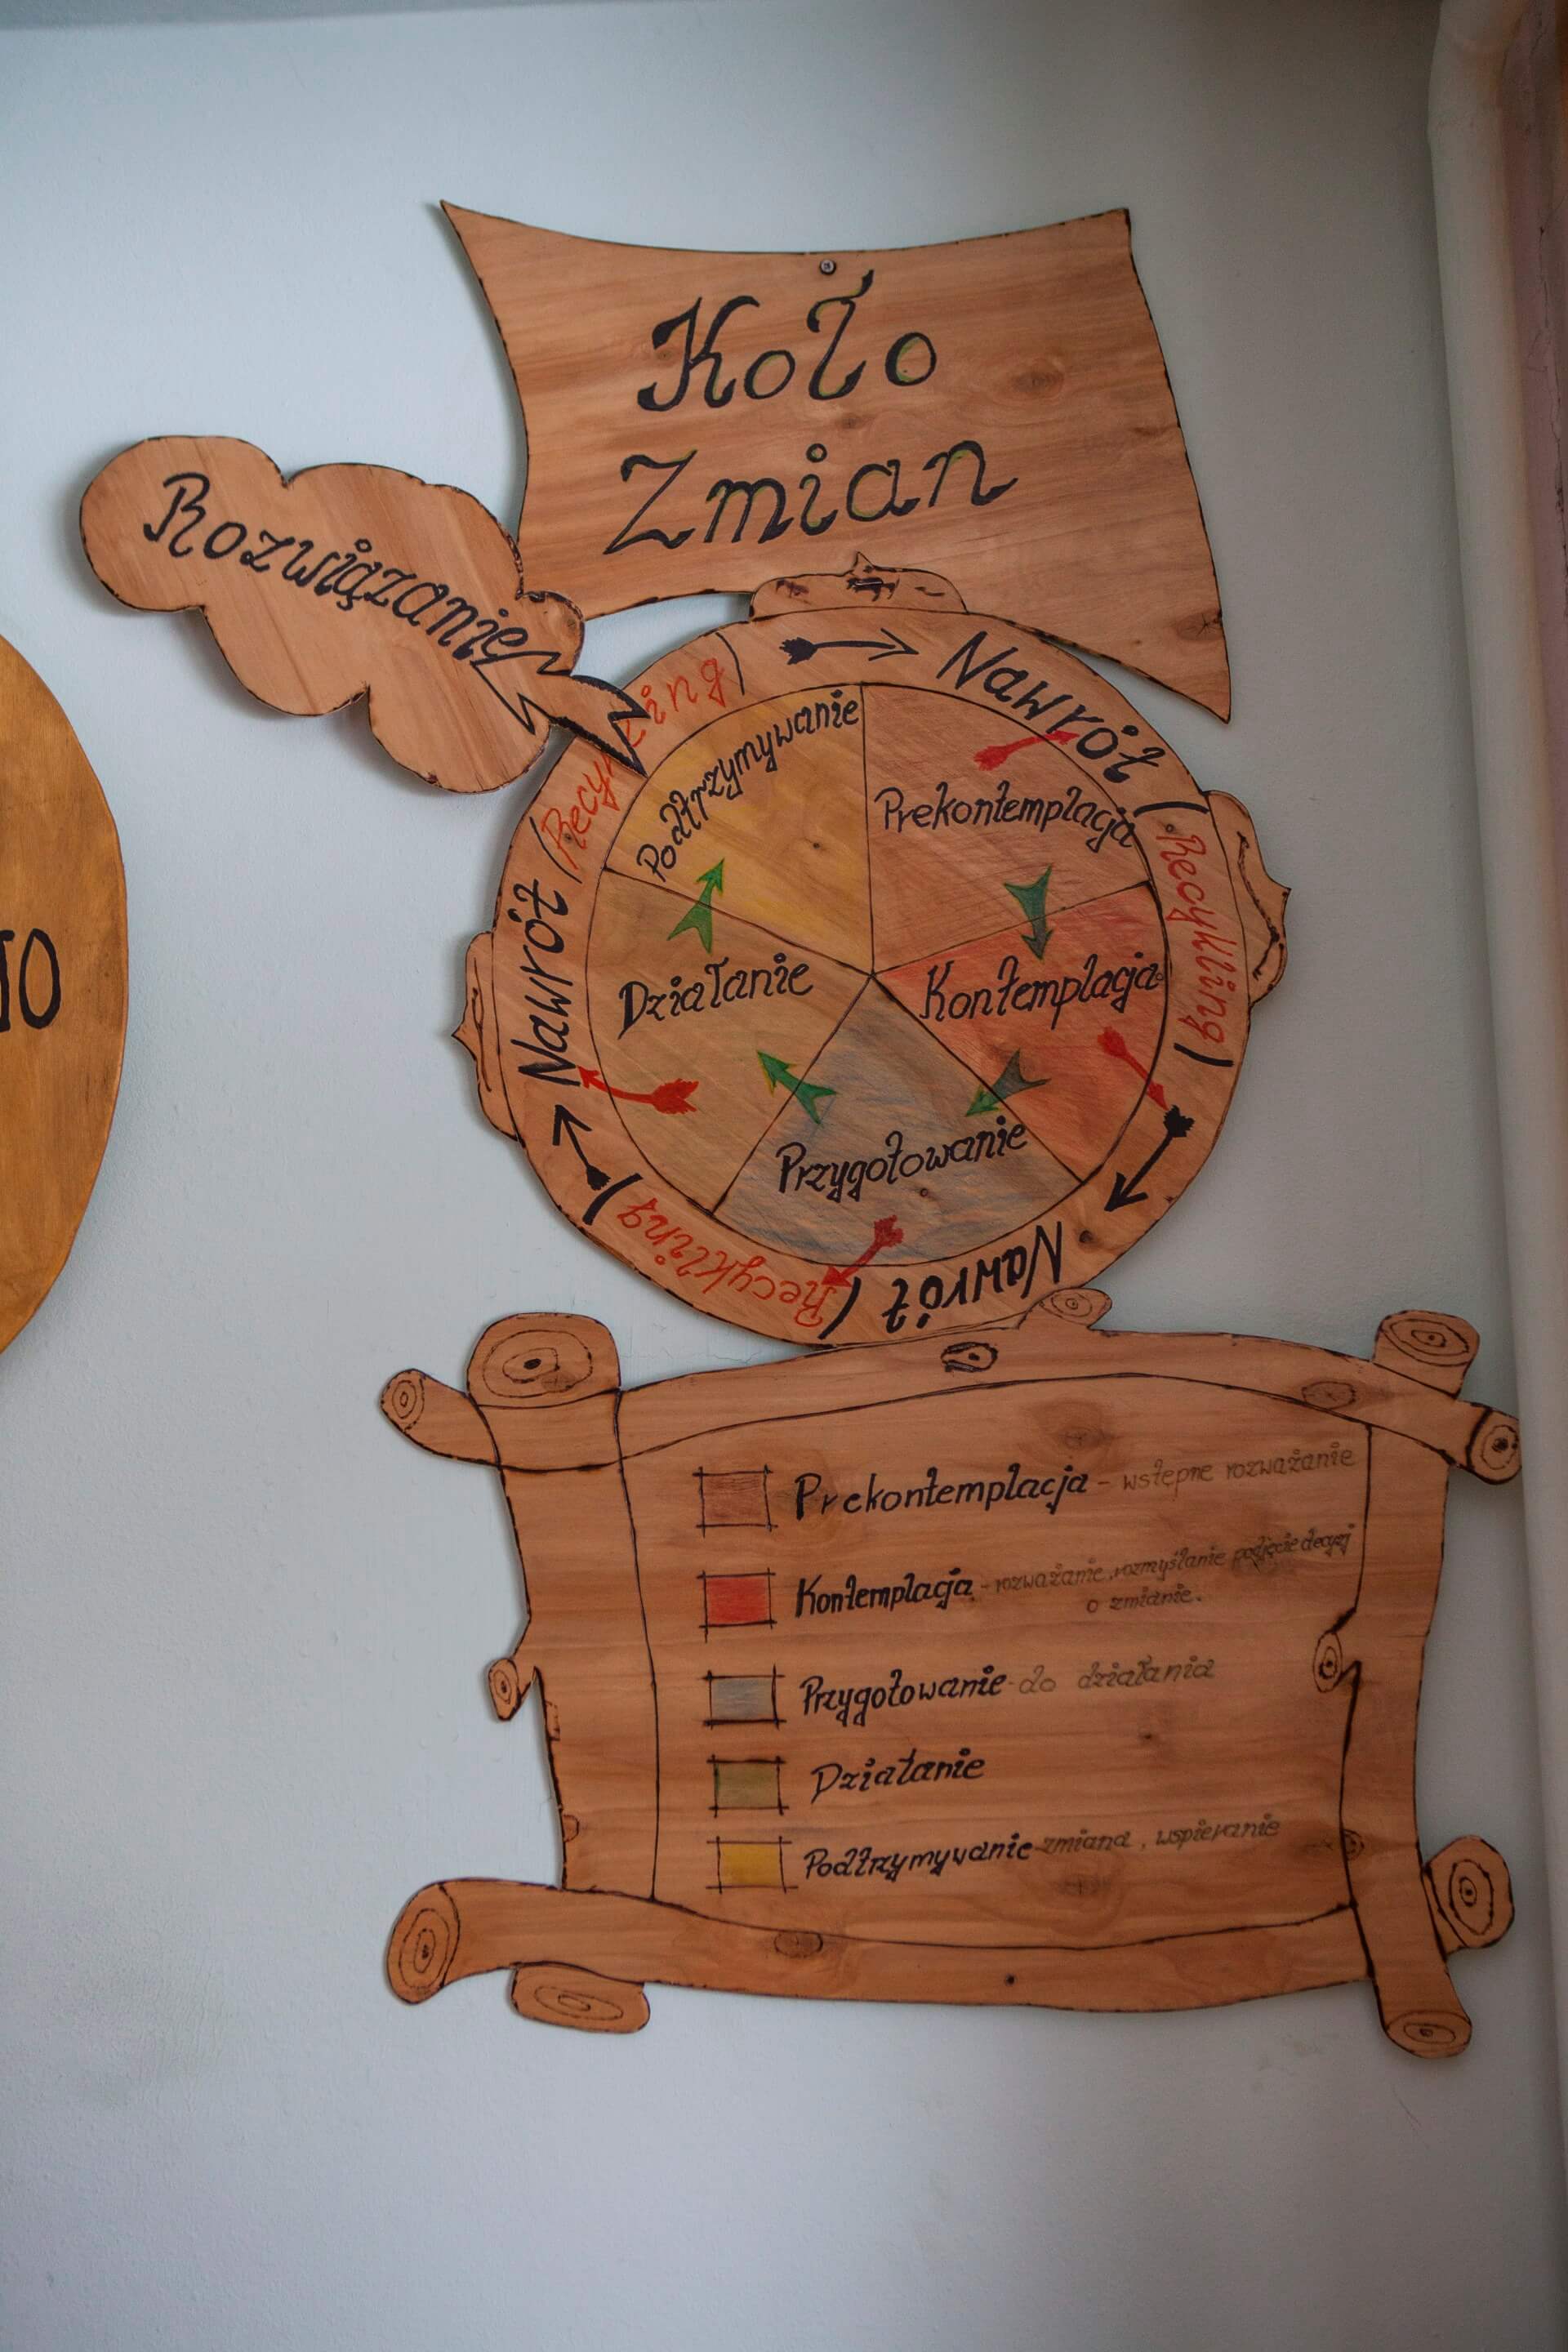 Koło
Zmian
Rozwiązanie
Nawrót (Recykling)
Nawrót (Recykling)
Nawrót (Recykling)
Podtrzymywanie
Prekontemplacja
Działanie
Kontemplacja
Przygotowanie
Prekontemplacja - wstępne rozważanie
Kontemplacja - rozważanie, rozmyślanie podjęcie decyzji
o zmianie.
Przygotowanie - do działania
Działanie
Podtrzymywanie - zmiana, wspieranie